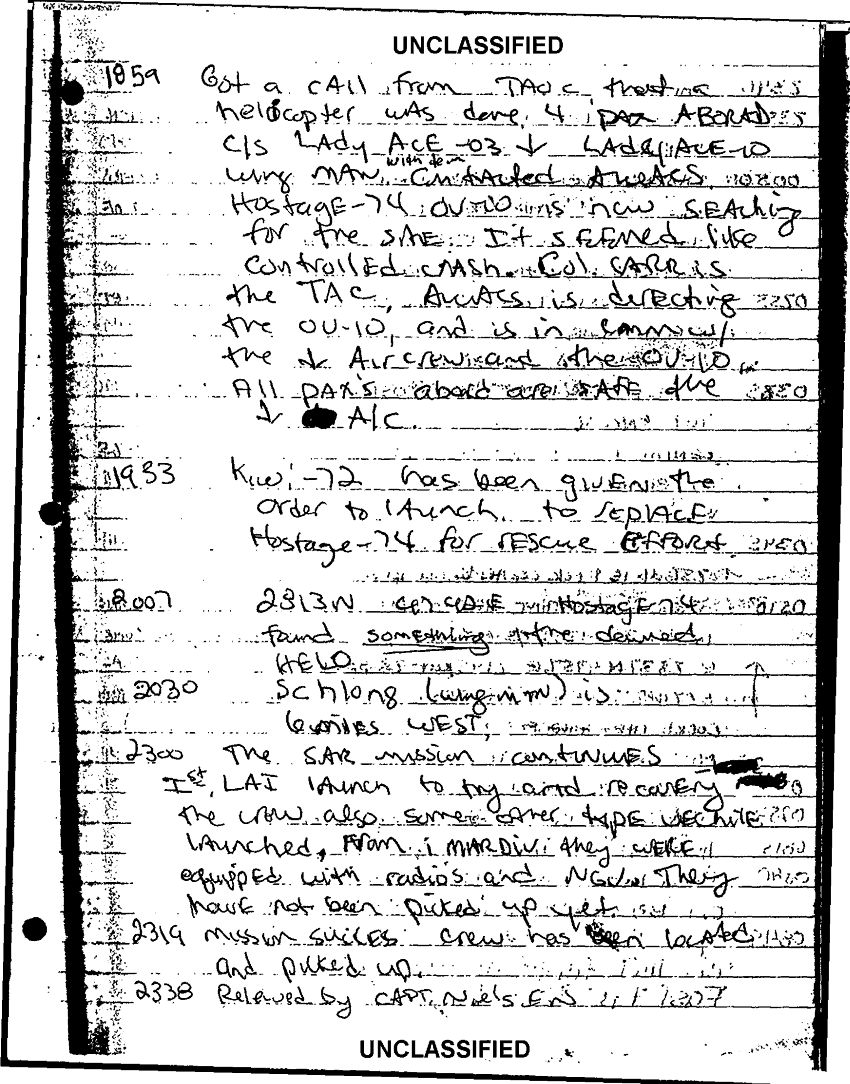 UNCLASSIFIED
1859 Got a cAll from TAOC that a
helicopter wAs done, 4 pax ABORAD
C/S LAdy ACE-03 ↓ LAdy ACE-10
wing MAN. with tem Contacted AwASS
HostagE-74 OU-10 is now SEAching
for the site. It sEEMEd like
controllEd crash. Col. CARR is
the TAC, AwASS is dirEcting
the OU-10, and is in comm w/
the ↓ Air crew and the OU-10.
All pax's aboard are sAFE the
↓ A/C.
1933 Kiwi-72 has been givEN the
order to lAunch. to rEplACE
Hostage-74 for rEscue EFFORt
2007 2813N Hostage-74
found something the downed
HELO
2030 Schlong (wingman) is
6 miles WEST,
2300 The SAR mission continuEs
1st LAI lAunch to try and recovery
the crew also some other type vEchilE
lAunched, From 1 MARDIV. they wERE
equippEd with radios and NGV. They
have not been picked up yet
2319 mission succes crew has been locatEd
and picked up.
2338 Relieved by CAPT. NielsEN
UNCLASSIFIED